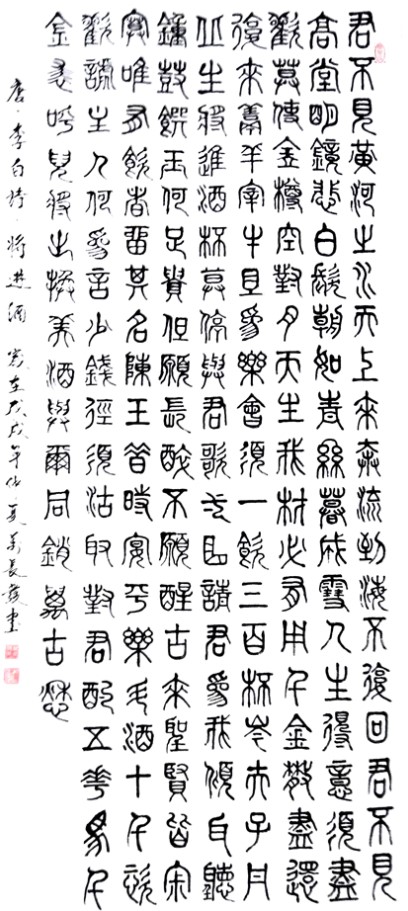 君不見黃河之水天上來奔流到海不復回君不見
高堂明鏡悲白髮朝如青絲暮成雪人生得意須盡
歡莫使金樽空對月天生我材必有用千金散盡還
復來烹羊宰牛且為樂會須一飲三百杯岑夫子丹
丘生將進酒杯莫停與君歌一曲請君為我傾耳聽
鐘鼓饌玉何足貴但願長醉不願醒古來聖賢皆寂
寞唯有飲者留其名陳王昔時宴平樂斗酒十千恣
歡謔主人何為言少錢徑須沽取對君酌五花馬千
金裘呼兒將出換美酒與爾同銷萬古愁
唐·李白詩·將進酒 歲在戊戌年仲夏 長書